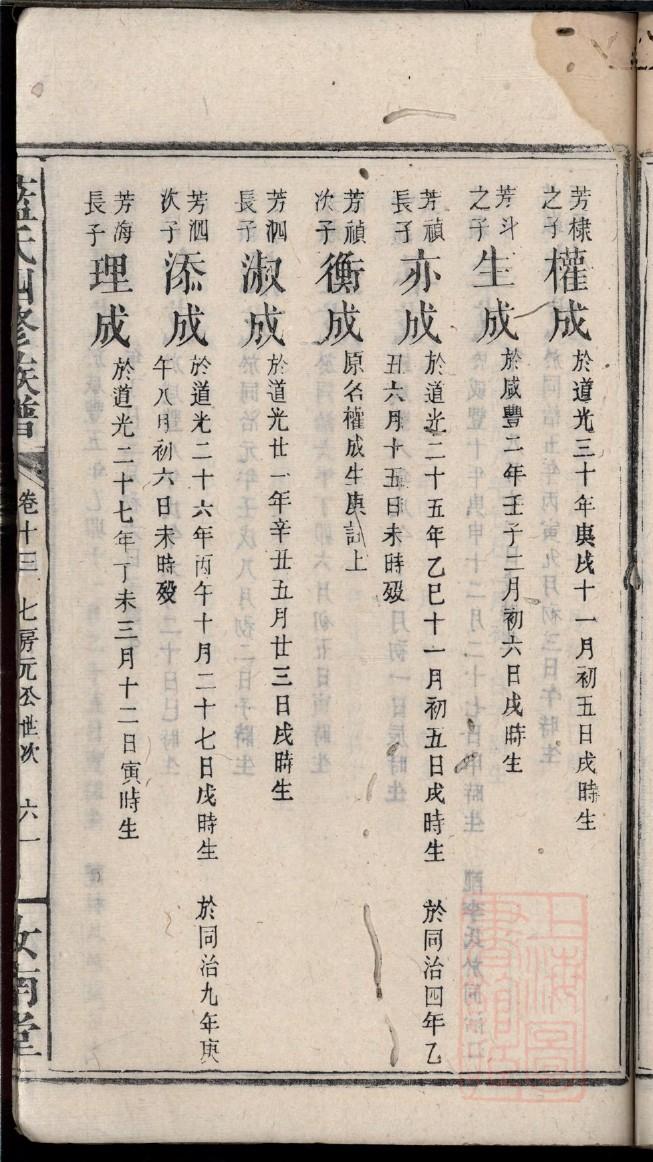 芳棣之子權成於道光三十年庚戌十一月初五日戌時生
芳斗之子生成於咸豐二年壬子二月初六日戌時生
芳禎長子亦成於道光二十五年乙巳十一月初五日戌時生 於同治四年乙
丑六月十五日未時歿
芳禎次子衡成原名權成生庚註上
芳泗長子淑成於道光廿一年辛丑五月廿三日戌時生
芳泗次子添成於道光二十六年丙午十月二十七日戌時生 於同治九年庚
午八月初六日未時歿
芳海長子理成於道光二十七年丁未三月十二日寅時生
藍氏四修族譜 卷十三 七房元公世次 六一 汝南堂
上海圖書館藏